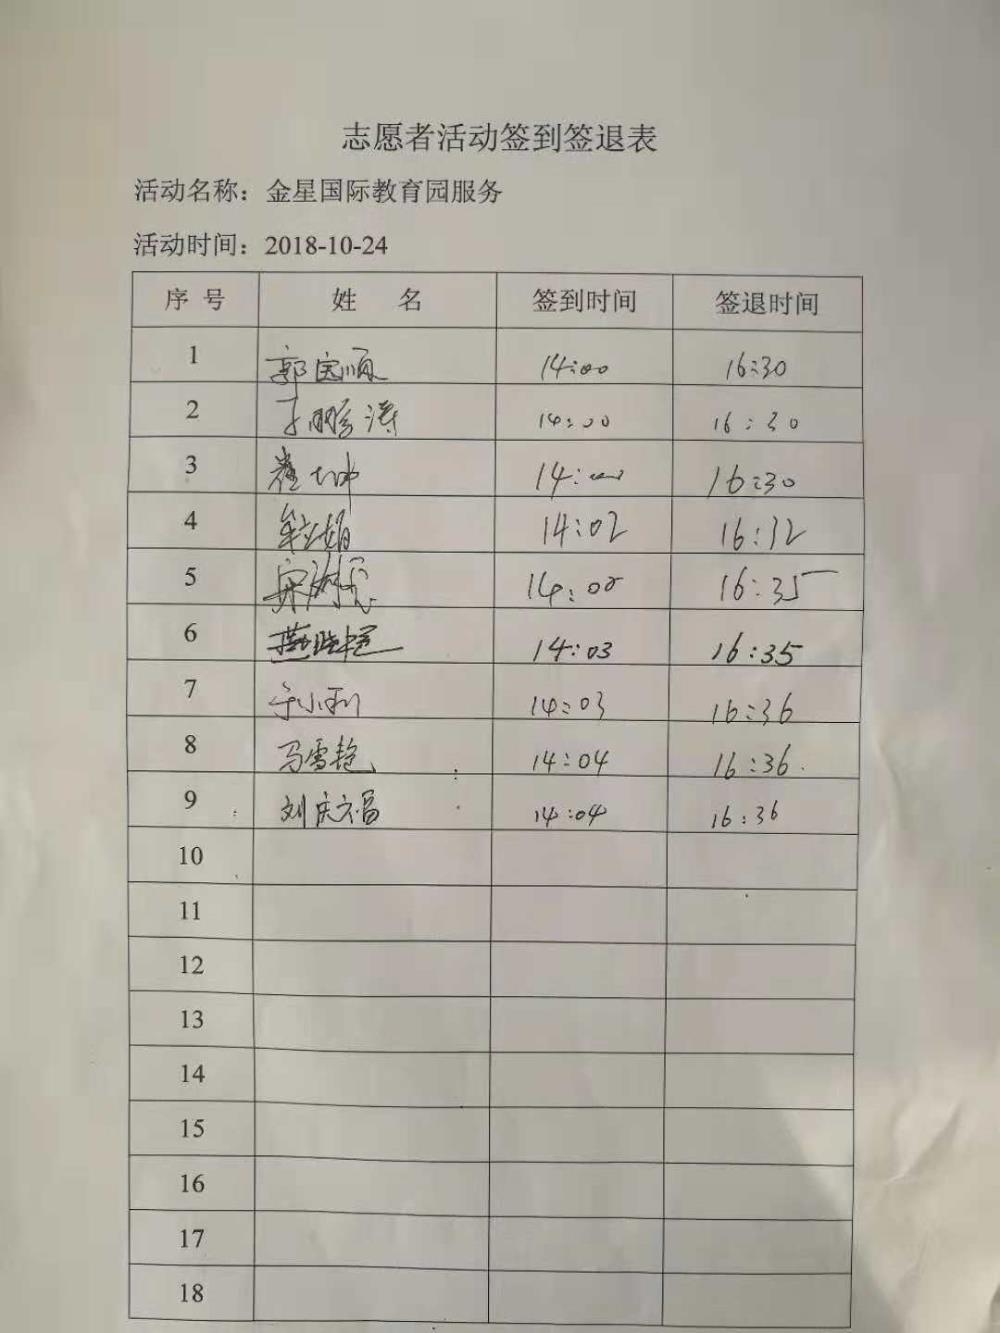 志愿者活动签到签退表
活动名称：金星国际教育园服务
活动时间：2018-10-24
序 号 姓 名 签到时间 签退时间
1 郭宝顺 14:00 16:30
2 于鹏涛 14:00 16:30
3 崔坤 14:00 16:30
4 牟立娟 14:02 16:32
5 14:00 16:35
6 14:03 16:35
7 于小利 14:03 16:36
8 马雪艳 14:04 16:36.
9 刘庆福 14:04 16:36
10
11
12
13
14
15
16
17
18